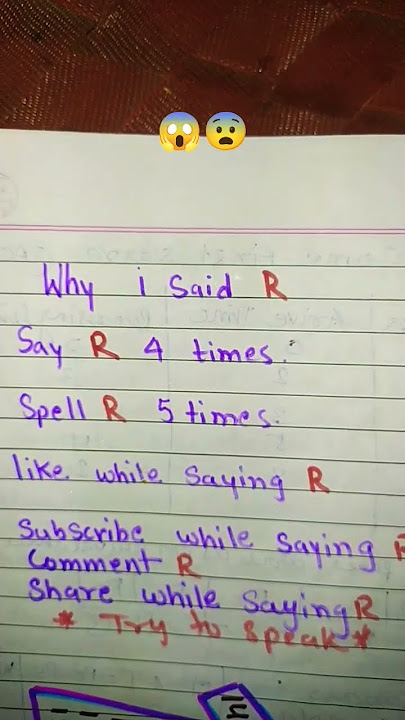 Why i Said R
Say R 4 times.
Spell R 5 times.
like while saying R
Subscribe while saying R
Comment R
Share while saying R
* Try to speak *